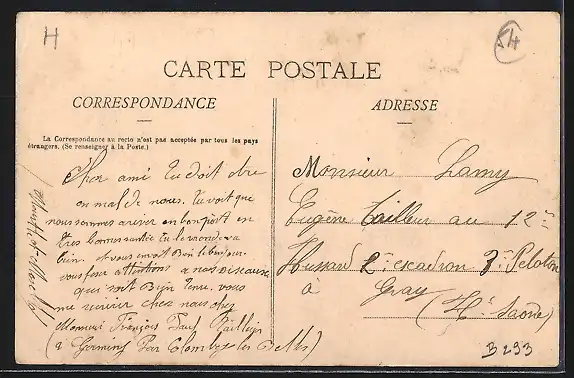 H
CARTE POSTALE
CORRESPONDANCE
ADRESSE
La Correspondance au recto n'est pas acceptée par tous les pays
étrangers. (Se renseigner à la Poste.)
Cher ami tu doit dire
on mal de nous. tu voit que
nous sommes arriver en bon port en
très bonne santée tu le monde va
bien et vous envoit Bien le bonjour.
vous ferer attentions a nos oiseaux
qui soit Bien tenue, vous
me chez nous chez
Monsieur François
a Germiny Par Colombey les Belles)
Monsieur Lamy
Eugène tailleur au 12e
Hussard 2e escadron 3e Peloton
à Gray
(Hte Saône)
B 293